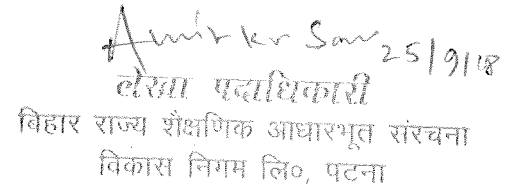 Amit kr Sav 25/9/18
लेखा पदाधिकारी
बिहार राज्य शैक्षणिक आधारभूत संरचना
विकास निगम लि०, पटना